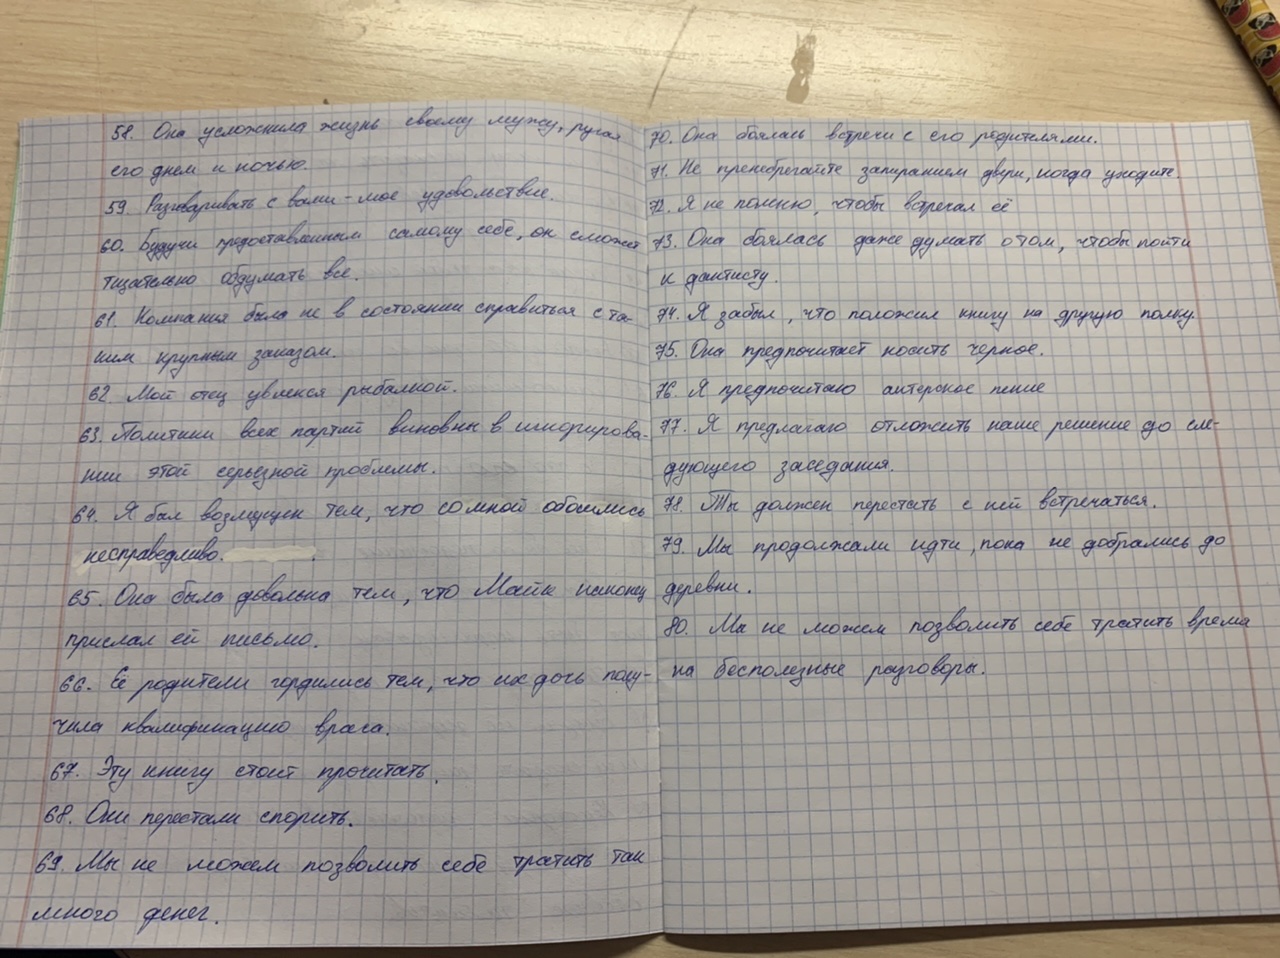 58. Она усложнила жизнь своему мужу, ругая
его днем и ночью.
59. Разговаривать с вами - мое удовольствие.
60. Будучи предоставленным самому себе, он сможет
тщательно обдумать все.
61. Компания была не в состоянии справиться с та-
ким крупным заказом.
62. Мой отец увлекся рыбалкой.
63. Политики всех партий виновны в игнорирова-
нии этой серьезной проблемы.
64. Я был возмущен тем, что со мной обошлись
несправедливо.
65. Она была довольна тем, что Майк наконец
прислал ей письмо.
66. Её родители гордились тем, что их дочь полу-
чила квалификацию врача.
67. Эту книгу стоит прочитать.
68. Они перестали спорить.
69. Мы не можем позволить себе тратить так
много денег.
70. Она боялась встречи с его родителями.
71. Не пренебрегайте запиранием двери, когда уходите.
72. Я не помню, чтобы встречал её
73. Она боялась даже думать о том, чтобы пойти
к дантисту.
74. Я забыл, что положил книгу на другую полку.
75. Она предпочитает носить черное.
76. Я предпочитаю актерское пение
77. Я предлагаю отложить наше решение до сле-
дующего заседания.
78. Ты должен перестать с ней встречаться.
79. Мы продолжали идти, пока не добрались до
деревни.
80. Мы не можем позволить себе тратить время
на бесполезные разговоры.